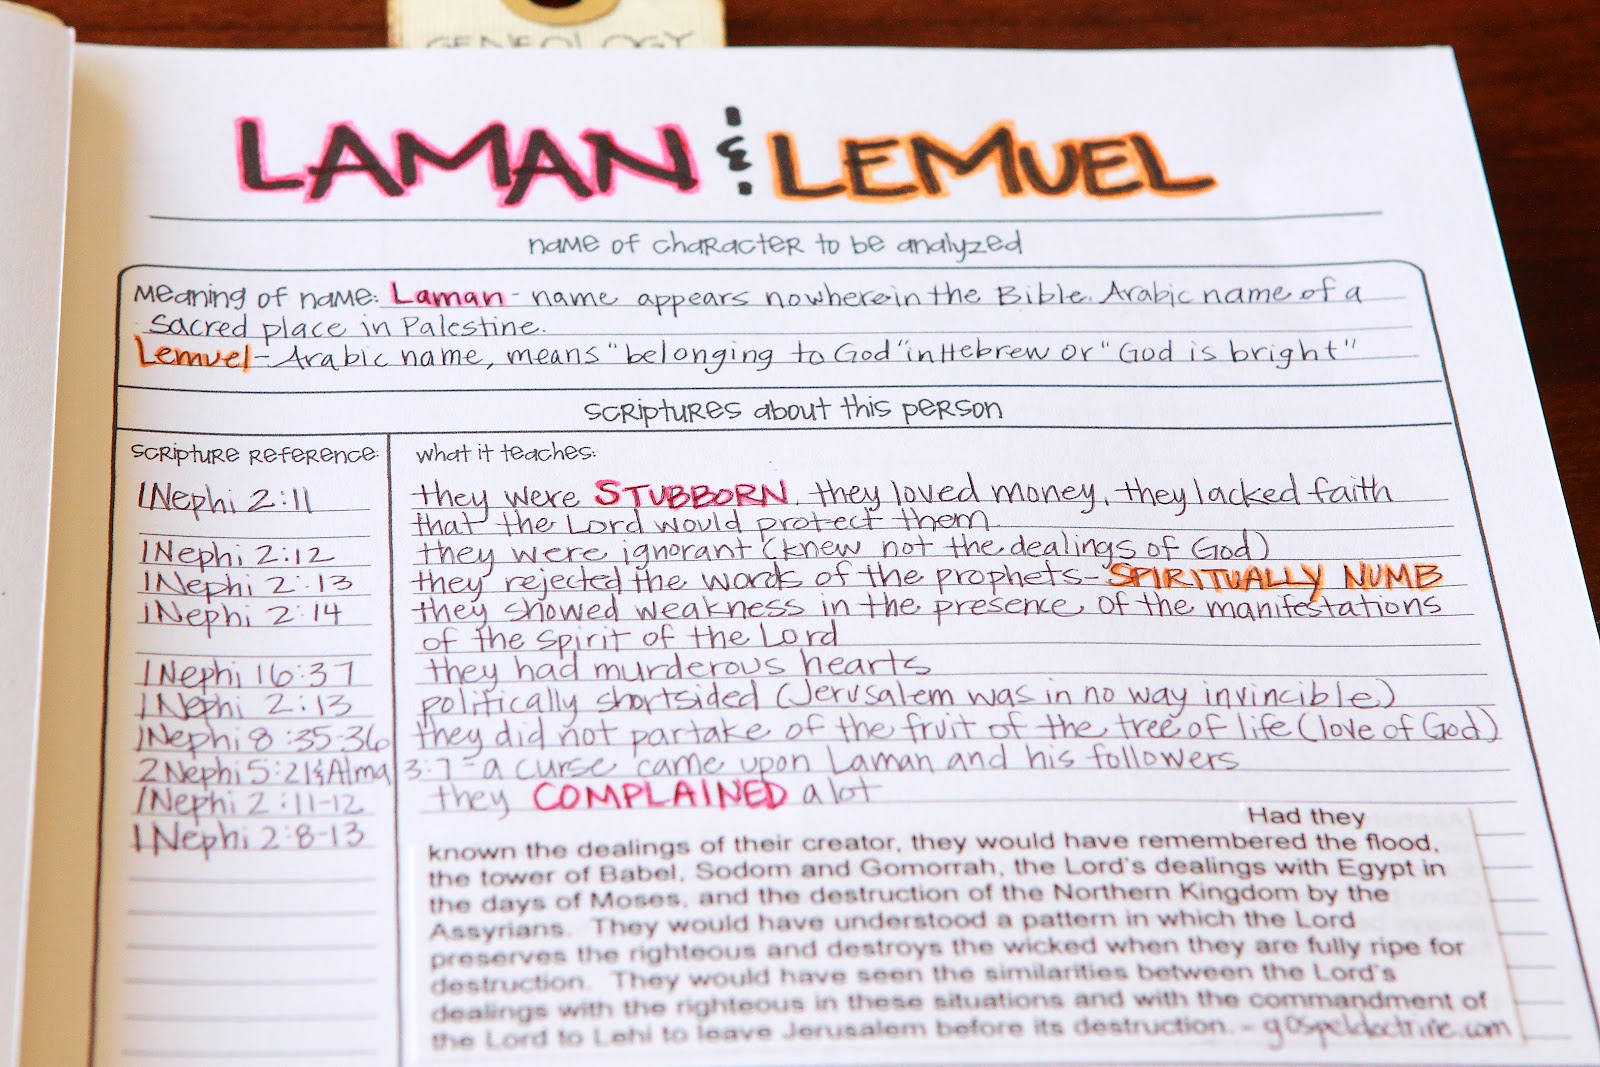 GENEOLOGY
LAMAN & LEMUEL
name of character to be analyzed
Meaning of name: Laman - name appears nowhere in the Bible. Arabic name of a
sacred place in Palestine.
Lemuel - Arabic name, means "belonging to God" in Hebrew or "God is bright"
scriptures about this person
scripture reference: what it teaches:
1 Nephi 2:11 they were STUBBORN, they loved money, they lacked faith
that the Lord would protect them.
1 Nephi 2:12 they were ignorant (knew not the dealings of God)
1 Nephi 2:13 they rejected the words of the prophets - SPIRITUALLY NUMB
1 Nephi 2:14 they showed weakness in the presence of the manifestations
of the spirit of the Lord
1 Nephi 16:37 they had murderous hearts
1 Nephi 2:13 politically shortsided (Jerusalem was in no way invincible)
1 Nephi 8:35-36 they did not partake of the fruit of the tree of life (love of God)
2 Nephi 5:21 & Alma 3:7 - a curse came upon Laman and his followers
1 Nephi 2:11-12 they COMPLAINED a lot
1 Nephi 2:8-13
Had they
known the dealings of their creator, they would have remembered the flood,
the tower of Babel, Sodom and Gomorrah, the Lord's dealings with Egypt in
the days of Moses, and the destruction of the Northern Kingdom by the
Assyrians. They would have understood a pattern in which the Lord
preserves the righteous and destroys the wicked when they are fully ripe for
destruction. They would have seen the similarities between the Lord's
dealings with the righteous in these situations and with the commandment of
the Lord to Lehi to leave Jerusalem before its destruction. - gospeldoctrine.com